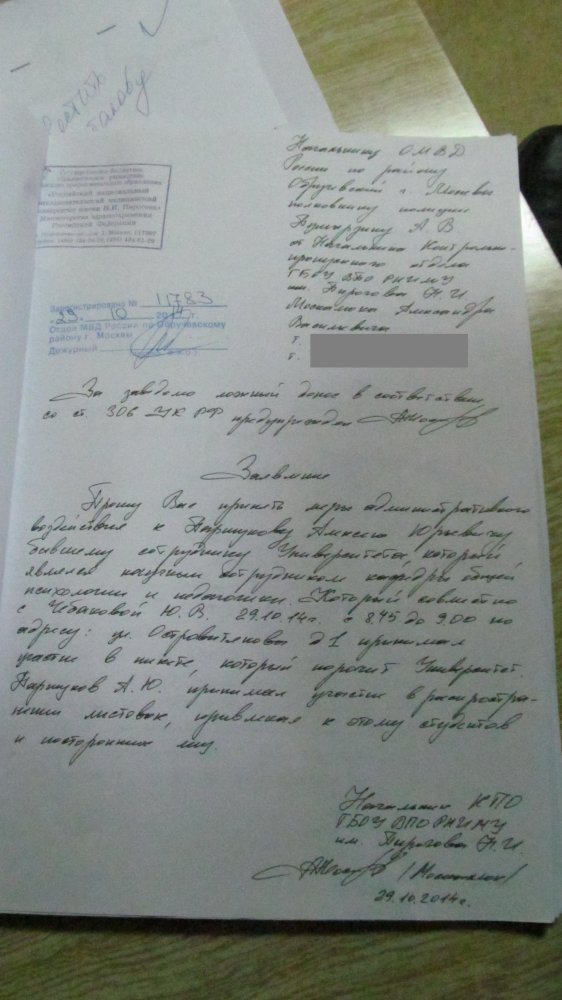 Начальнику ОМВД
России по району
Обручевский г. Москвы
полковнику полиции
А. В.
от Начальника Контрольно-
пропускного отдела
ГБОУ ВПО РНИМУ
им. Пирогова Н.И
Москалюка Александра
Васильевича
т.
т.
Государственное бюджетное
образовательное учреждение
высшего профессионального образования
«Российский национальный
исследовательский медицинский
университет имени Н.И. Пирогова»
Министерства здравоохранения
Российской Федерации
Зарегистрировано № 11783
29. 10 2014 г.
Отдел МВД России по Обручевскому
району г. Москвы
Дежурный
За заведомо ложный донос в соответствие
со ст. 306 УК РФ предупрежден
Заявление
Прошу Вас принять меры административного
воздействия к Паршукову Алексею Юрьевичу
бывшему сотруднику Университета, который
являлся сотрудником кафедры общей
психологии и педагогики. Который совместно
с Ю. В. 29.10.14г. с 8.45 до 9.00 по
адресу: ул. Островитянова д 1 принимал
участие в пикете, который порочит Университет.
Паршуков А.Ю. принимал участие в распростра-
нении листовок, привлекая к этому студентов
и посторонних лиц.
Начальник КПО
ГБОУ ВПО РНИМУ
им. Пирогова Н.И.
29.10.2014г.